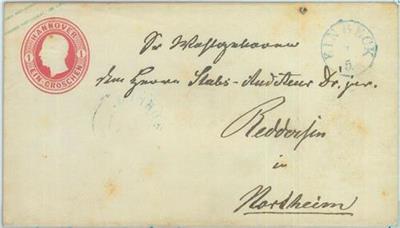 HANNOVER
1 1
EIN GROSCHEN
EINBECK
5
Sr Wohlgeboren
dem Herrn Stabs-Auditeur Dr. jur.
in
Northeim